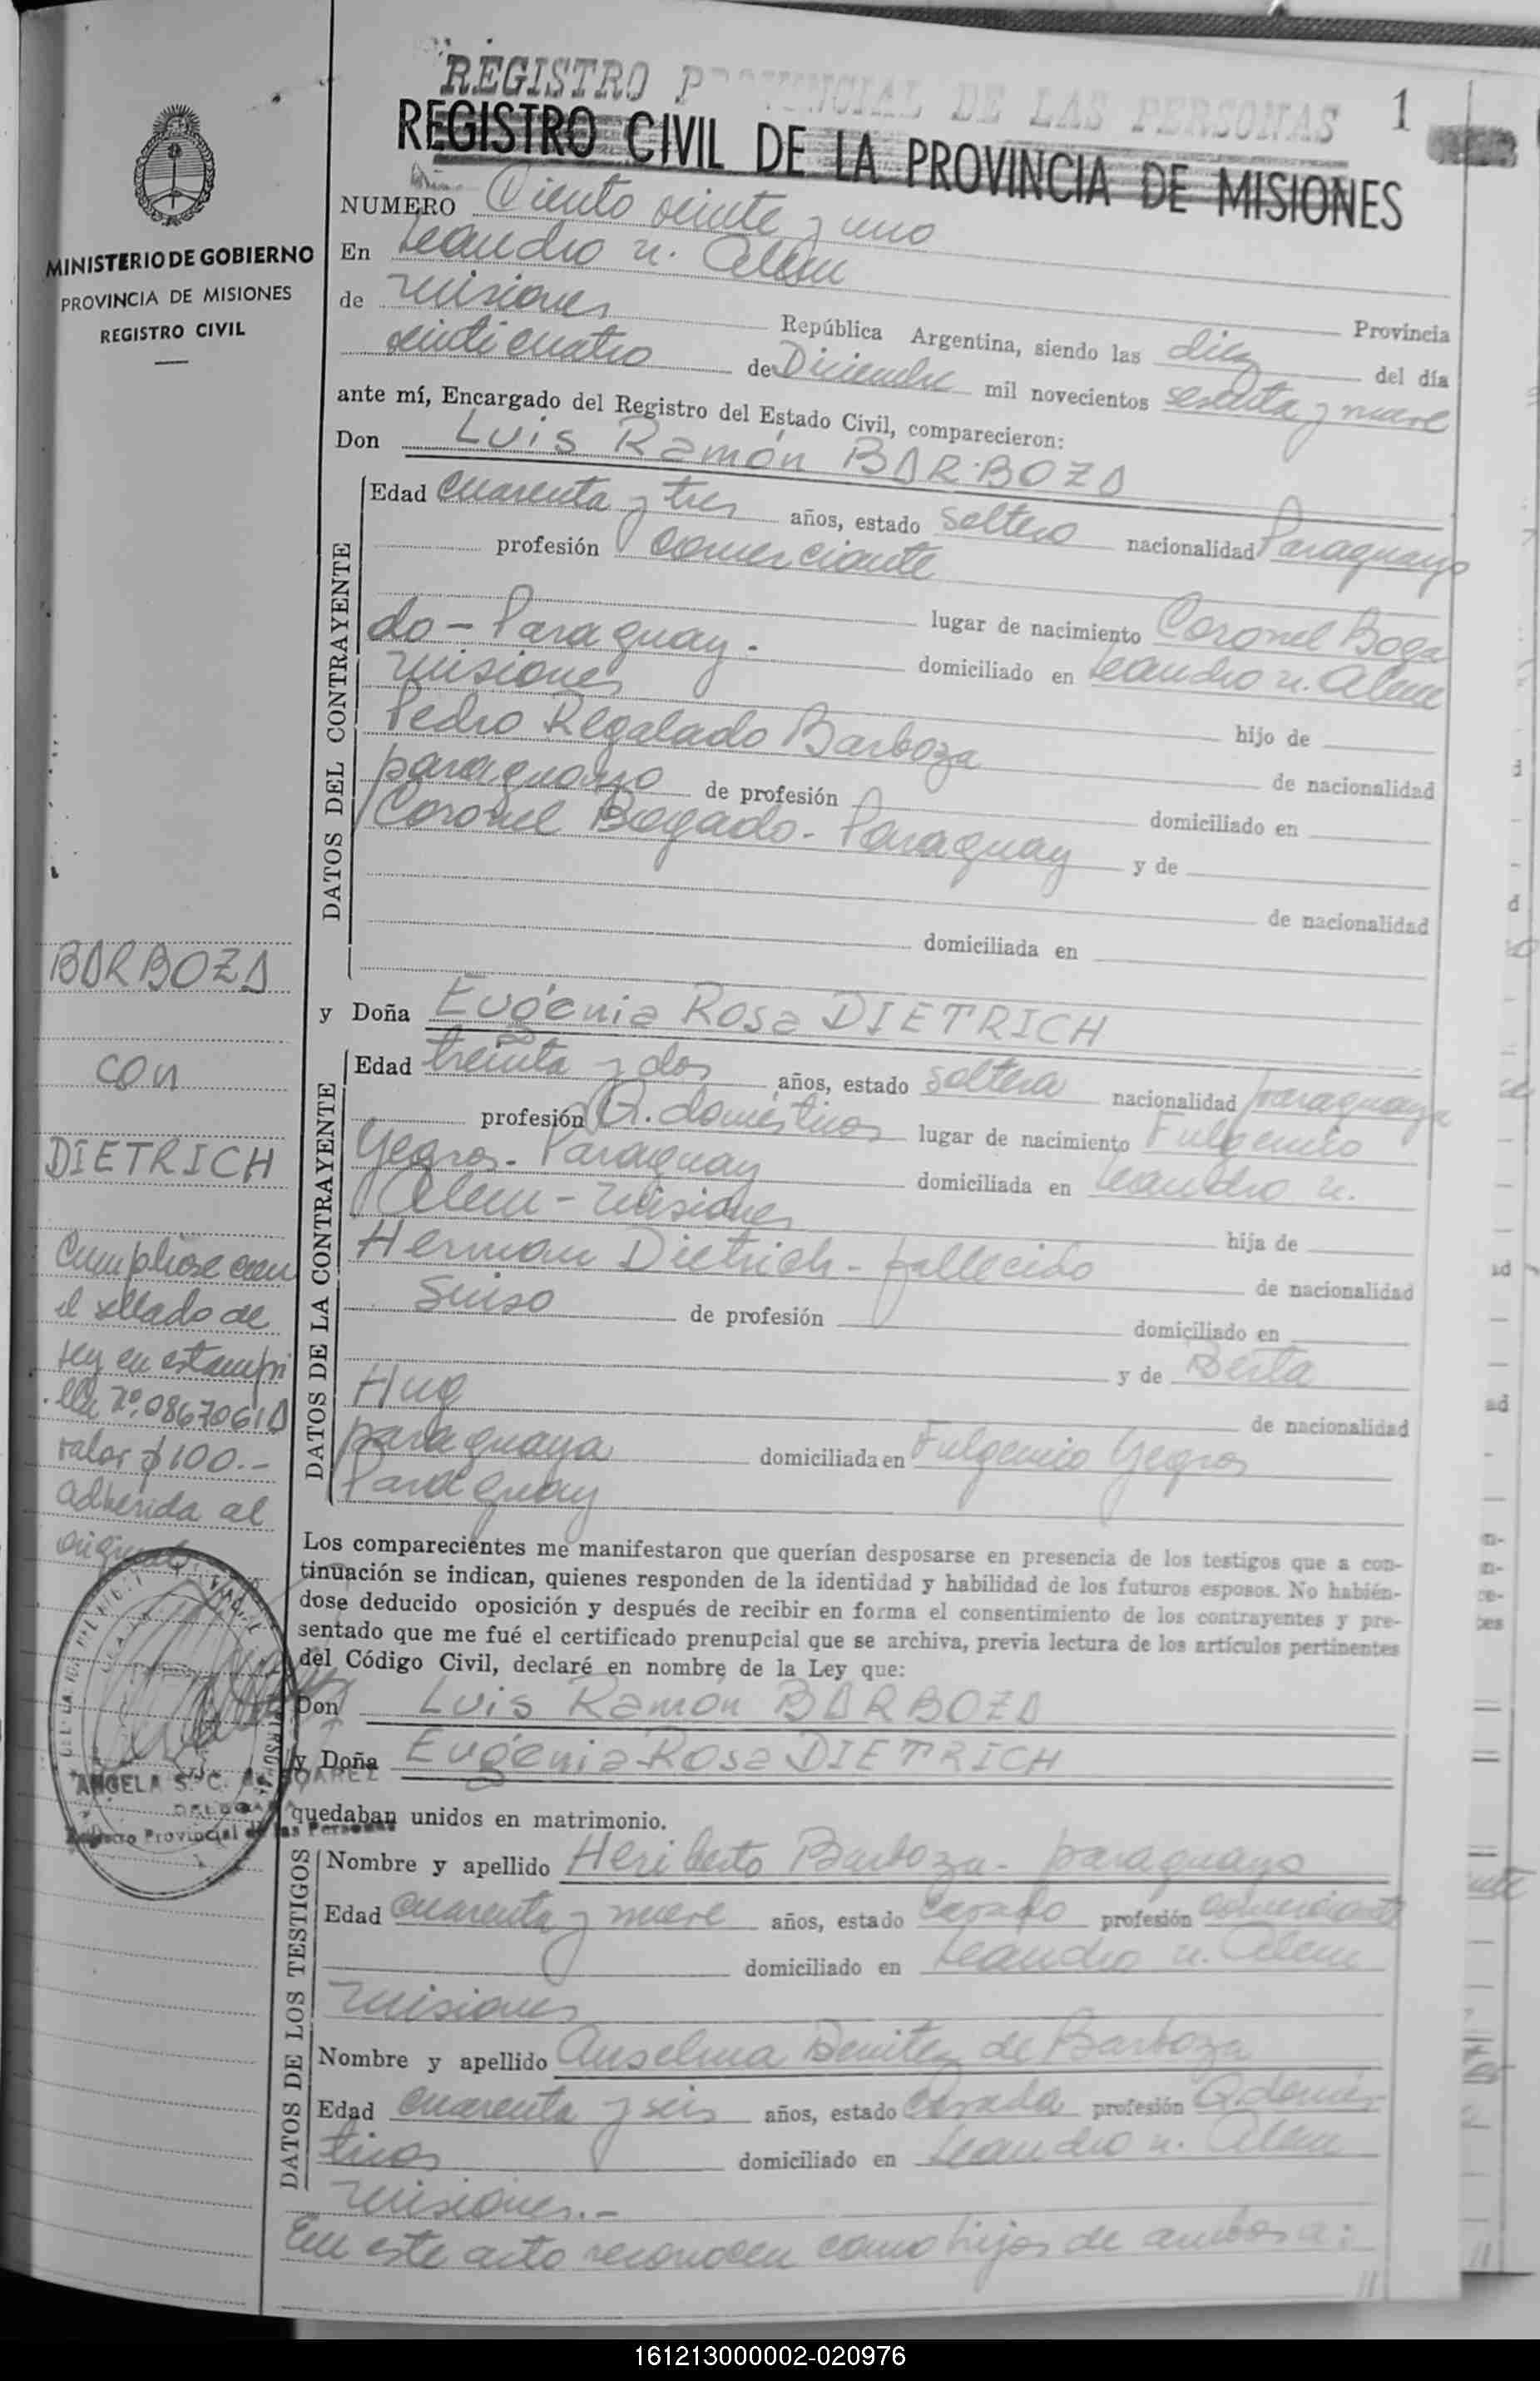 REGISTRO PROVINCIAL DE LAS PERSONAS 1
REGISTRO CIVIL DE LA PROVINCIA DE MISIONES
MINISTERIO DE GOBIERNO
PROVINCIA DE MISIONES
REGISTRO CIVIL
NUMERO Ciento veinte y uno
En Leandro N. Alem
Provincia
de Misiones República Argentina, siendo las diez del día
veinticuatro de Diciembre mil novecientos sesenta y nueve
ante mí, Encargado del Registro del Estado Civil, comparecieron:
Don Luis Ramón BARBOZA
DATOS DEL CONTRAYENTE
Edad cuarenta y tres años, estado soltero nacionalidad Paraguayo
profesión comerciante
lugar de nacimiento Coronel Boga
do - Paraguay. domiciliado en Leandro N. Alem
Misiones hijo de
Pedro Regalado Barboza de nacionalidad
paraguayo de profesión domiciliado en
Coronel Bogado - Paraguay y de
de nacionalidad
domiciliada en
y Doña Eugenia Rosa DIETRICH
DATOS DE LA CONTRAYENTE
Edad treinta y dos años, estado soltera nacionalidad paraguaya
profesión Q. domésticos lugar de nacimiento Fulgencio
Yegros - Paraguay domiciliada en Leandro N.
Alem - Misiones hija de
Herman Dietrich - fallecido de nacionalidad
Suiso de profesión domiciliado en
y de Berta
Hug de nacionalidad
paraguaya domiciliada en Fulgencio Yegros
Paraguay
BARBOZA
con
DIETRICH
Cumpliose con
el sellado de
ley en estampi
lla Nº 0867061A
valor $100.-
adherida al
original.
Los comparecientes me manifestaron que querían desposarse en presencia de los testigos que a con-
tinuación se indican, quienes responden de la identidad y habilidad de los futuros esposos. No habién-
dose deducido oposición y después de recibir en forma el consentimiento de los contrayentes y pre-
sentado que me fué el certificado prenupcial que se archiva, previa lectura de los artículos pertinentes
del Código Civil, declaré en nombre de la Ley que:
Don Luis Ramón BARBOZA
y Doña Eugenia Rosa DIETRICH
quedaban unidos en matrimonio.
ANGELA S. C. de SUAREZ
DELEGADA
Registro Provincial de las Personas
DATOS DE LOS TESTIGOS
Nombre y apellido Heriberto Barboza - paraguayo
Edad cuarenta y nueve años, estado casado profesión comerciante
domiciliado en Leandro N. Alem
Misiones
Nombre y apellido Anselma Benitez de Barboza
Edad cuarenta y seis años, estado casada profesión Q domés
ticos domiciliado en Leandro N. Alem
Misiones.-
En este acto reconocen como hijos de ambos a:
//
161213000002-020976